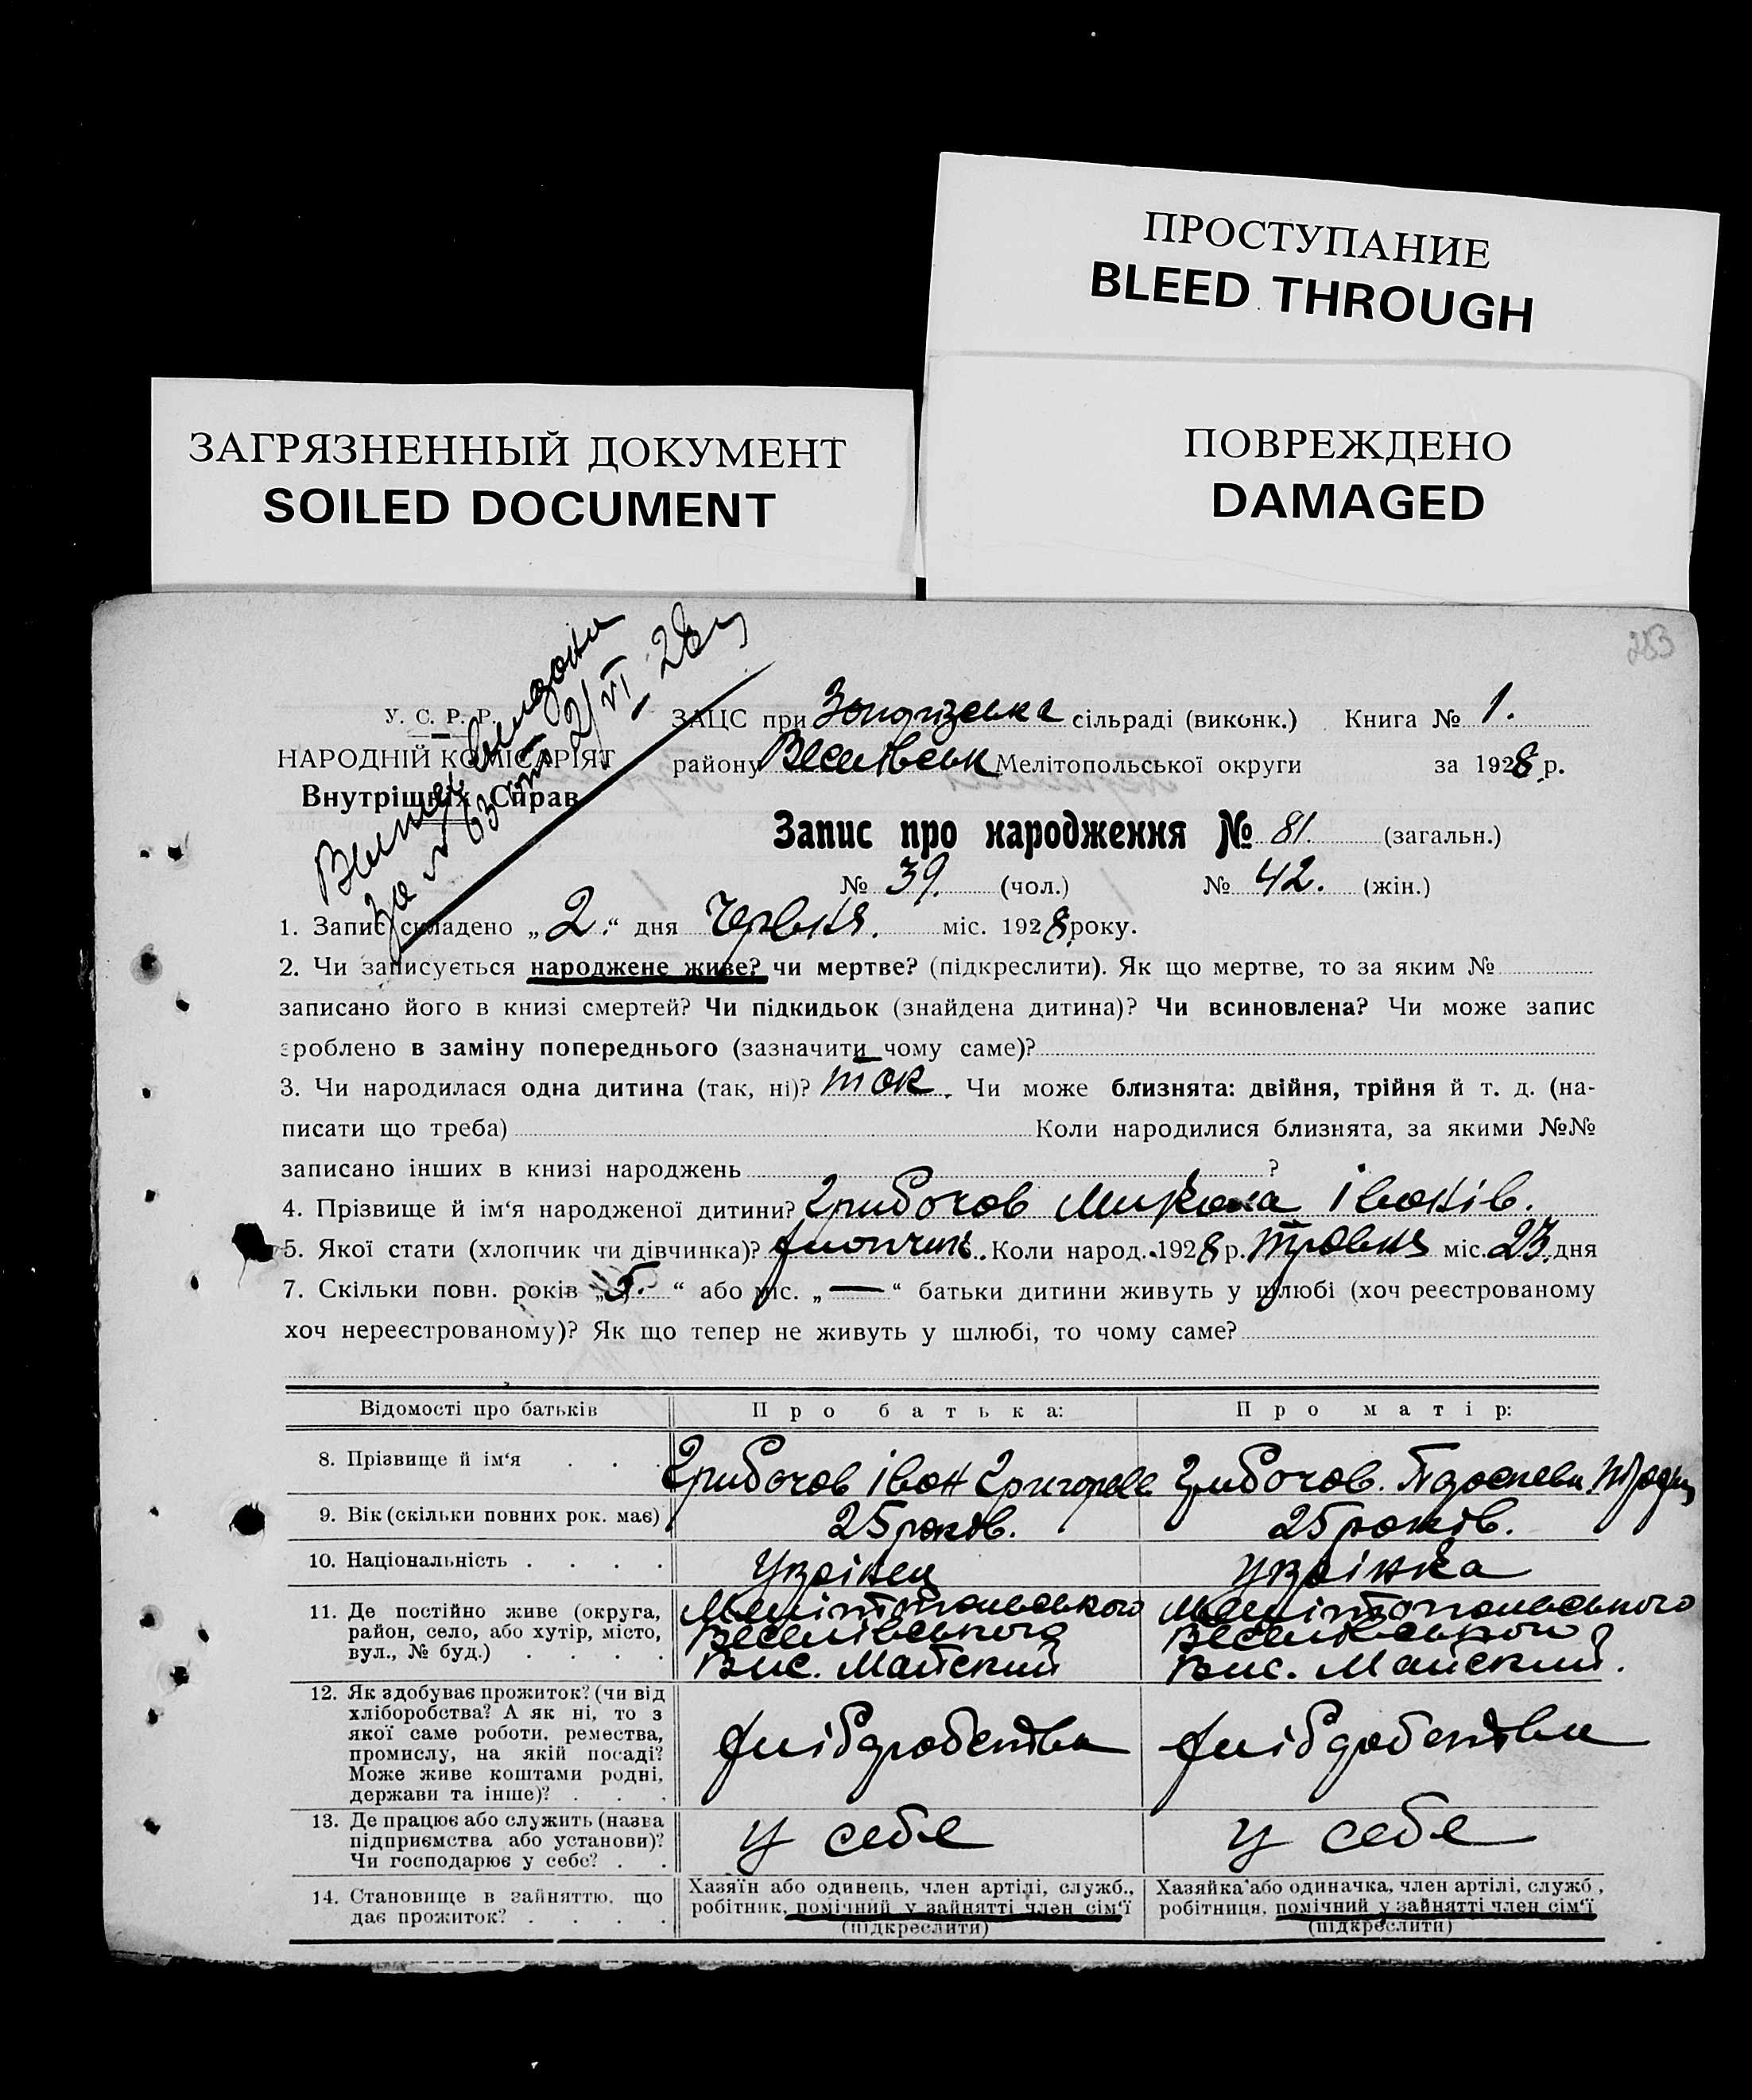 ПРОСТУПАНИЕ
BLEED THROUGH
ЗАГРЯЗНЕННЫЙ ДОКУМЕНТ
SOILED DOCUMENT
ПОВРЕЖДЕНО
DAMAGED
283
У. С. Р. Р.
НАРОДНІЙ КОМІСАРІЯТ
Внутрішніх Справ
за № 63 2/VI 28
ЗАЦС при сільраді (виконк.) Книга № 1.
району Веселівськ Мелітопольської округи за 1928 р.
Запис про народження № 81. (загальн.)
№ 39. (чол.) № 42. (жін.)
1. Запис складено „2.“ дня Червня. міс. 1928 року.
2. Чи записується народжене живе? чи мертве? (підкреслити). Як що мертве, то за яким №
записано його в книзі смертей? Чи підкидьок (знайдена дитина)? Чи всиновлена? Чи може запис
зроблено в заміну попереднього (зазначити чому саме)?
3. Чи народилася одна дитина (так, ні)? так. Чи може близнята: двійня, трійня й т. д. (на-
писати що треба) Коли народилися близнята, за якими №№
записано інших в книзі народжень ?
4. Прізвище й ім‘я народженої дитини? Грибочов Микола Іванів.
5. Якої стати (хлопчик чи дівчинка)? хлопчик. Коли народ. 1928 р. травня міс. 23. дня
7. Скільки повн. років „5.“ або міс. „—“ батьки дитини живуть у шлюбі (хоч реєстрованому
хоч нереєстрованому)? Як що тепер не живуть у шлюбі, то чому саме?
Відомості про батьків Про батька: Про матір:
8. Прізвище й ім‘я . . . Грибочов Іван Григоров Грибочов.
9. Вік (скільки повних рок. має) 25 років. 25 років.
10. Національність . . . . Украінец Украінка
11. Де постійно живе (округа, Мелітопольського Мелітопольського
район, село, або хутір, місто, Веселівського Веселівського
вул., № буд.) . . . . Вис. Майский Вис. Майский.
12. Як здобуває прожиток? (чи від
хліборобства? А як ні, то з
якої саме роботи, ремества,
промислу, на якій посаді? хліборобства хліборобства
Може живе коштами родні,
держави та інше)? . . .
13. Де працює або служить (назва
підприємства або установи)? у себе у себе
Чи господарює у себе? . .
14. Становище в зайняттю, що Хазяїн або одинець, член артілі, служб., Хазяйка або одиначка, член артілі, служб.,
дає прожиток? . . . . робітник, помічний у зайнятті член сім‘ї робітниця, помічний у зайнятті член сім‘ї
(підкреслити) (підкреслити)